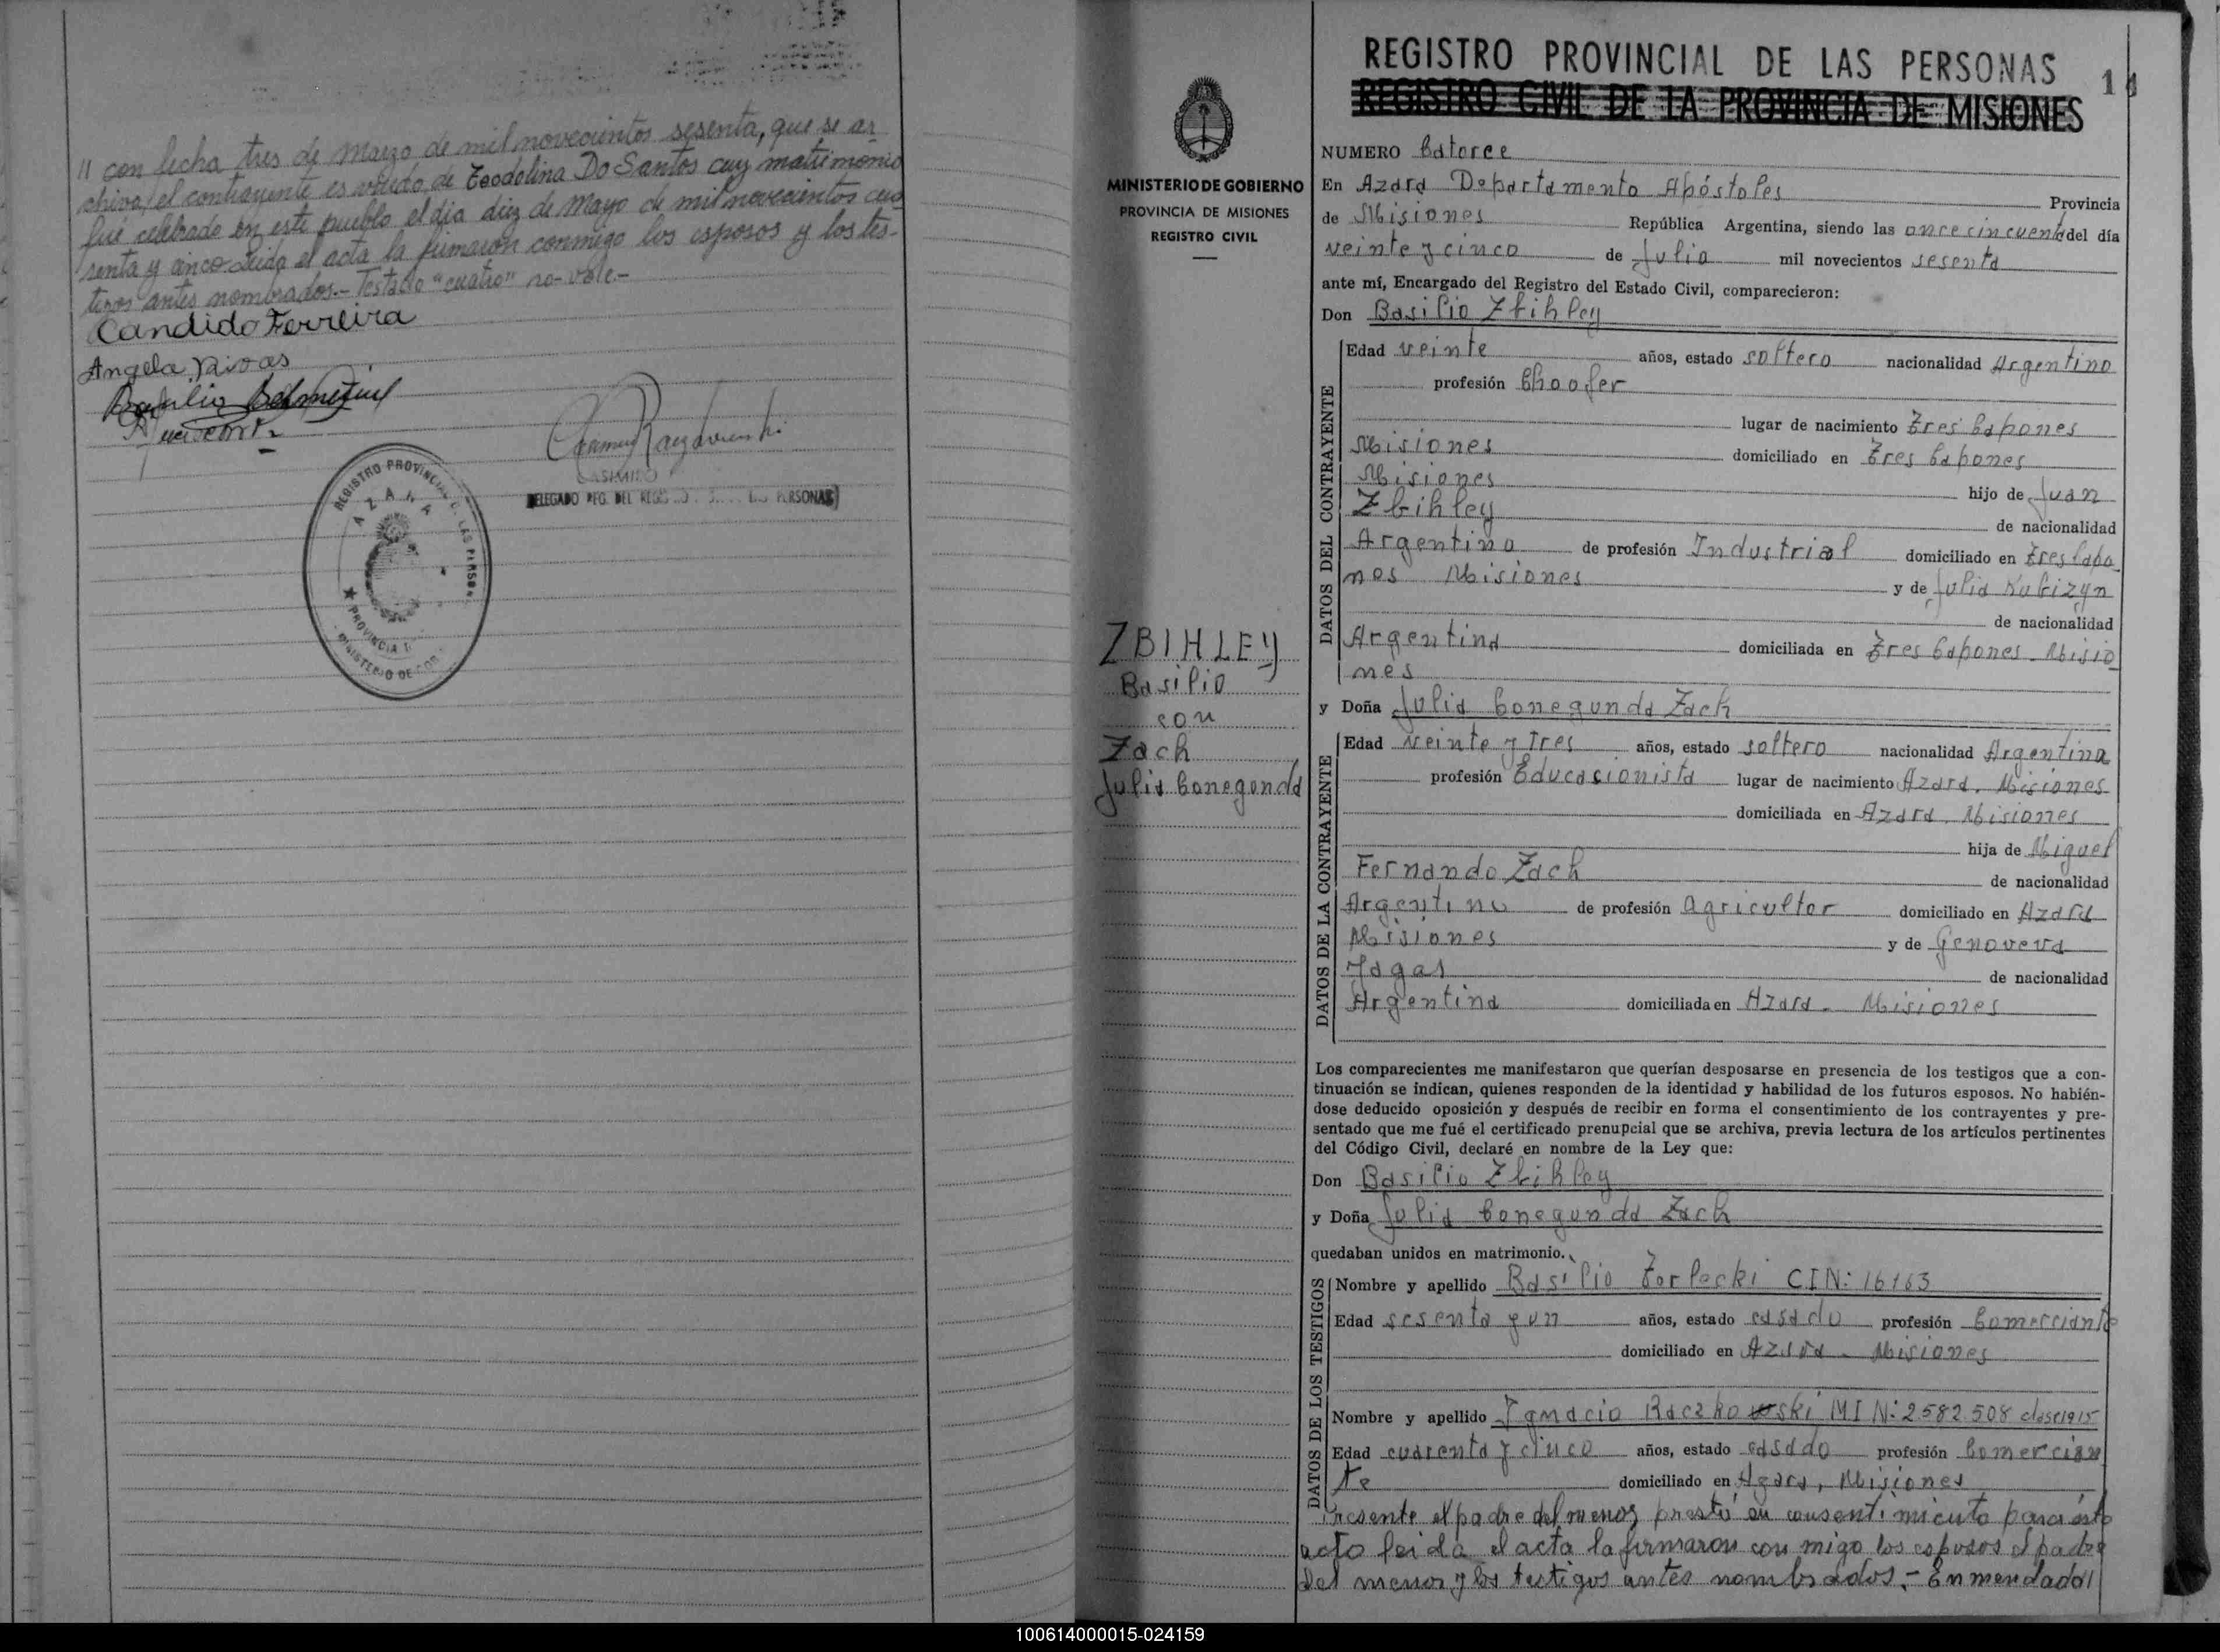 // con fecha tres de Marzo de mil novecientos sesenta, que se ar_
chiva, el contrayente es viudo de Teodolina Do Santos cuy matrimonio
fue celebrado en este pueblo el dia diez de Mayo de mil novecientos cua
renta y cinco. Leida el acta la firmaron conmigo los esposos y los tes-
tigos antes nombrados.- Testado "cuatro" no-vale.-
Candido Ferreira
Angela Rivas
CASIMIRO
DELEGADO
REGISTRO PROVINCIAL D. LAS PERSON.
AZARA
PROVINCIA
MINISTERIO DE GOB
MINISTERIO DE GOBIERNO
PROVINCIA DE MISIONES
REGISTRO CIVIL
ZBIHLEY
Basilio
con
Zach
Julia Conegonda
REGISTRO PROVINCIAL DE LAS PERSONAS
REGISTRO CIVIL DE LA PROVINCIA DE MISIONES
NUMERO Catorce
En Azara Departamento Apóstoles Provincia
de Misiones República Argentina, siendo las once cincuenta del día
veinte y cinco de Julio mil novecientos sesenta
ante mí, Encargado del Registro del Estado Civil, comparecieron:
Don Basilio Zbihley
DATOS DEL CONTRAYENTE
Edad veinte años, estado soltero nacionalidad Argentino
profesión Choofer
lugar de nacimiento Tres Capones
Misiones domiciliado en Tres Capones
Misiones hijo de Juan
Zbihley de nacionalidad
Argentino de profesión Industrial domiciliado en Tres Capo
nes Misiones y de Julia Kubizyn
de nacionalidad
Argentina domiciliada en Tres Capones - Misio
nes
y Doña Julia Conegunda Zach
DATOS DE LA CONTRAYENTE
Edad veinte y Tres años, estado soltero nacionalidad Argentina
profesión Educasionista lugar de nacimiento Azara. Misiones
domiciliada en Azara. Misiones
hija de Miguel
Fernando Zach de nacionalidad
Argentino de profesión agricultor domiciliado en Azara
Misiones y de Genoveva
Jagas de nacionalidad
Argentina domiciliada en Azara - Misiones
Los comparecientes me manifestaron que querían desposarse en presencia de los testigos que a con-
tinuación se indican, quienes responden de la identidad y habilidad de los futuros esposos. No habién-
dose deducido oposición y después de recibir en forma el consentimiento de los contrayentes y pre-
sentado que me fué el certificado prenupcial que se archiva, previa lectura de los artículos pertinentes
del Código Civil, declaré en nombre de la Ley que:
Don Basilio Zbihley
y Doña Julia Conegunda Zach
quedaban unidos en matrimonio.
DATOS DE LOS TESTIGOS
Nombre y apellido Basilio Zorlecki CIN: 16163
Edad sesenta y un años, estado casado profesión Comerciante
domiciliado en Azara - Misiones
Nombre y apellido Ignacio Raczkowski MI N: 2.582.508 clase 1915
Edad cuarenta y cinco años, estado casado profesión Comercian
te domiciliado en Azara, Misiones
Presente el padre del menor prestó su consentimiento para éste
acto leida el acta la firmaron con migo los esposos el padre
del menor y los testigos antes nombrados.- Enmendado//
100614000015-024159